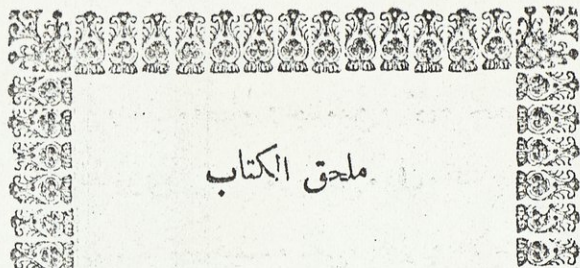 ملحق الكتاب